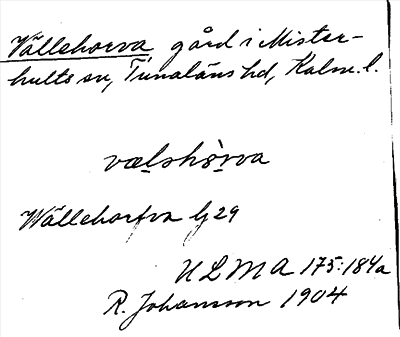 Vällehorva gård i Mister-
hults sn, Tunaläns hd, Kalm. l.
vælshòrva
Wällehorfva lj 29
ULMA 175:184a
R. Johansson 1904